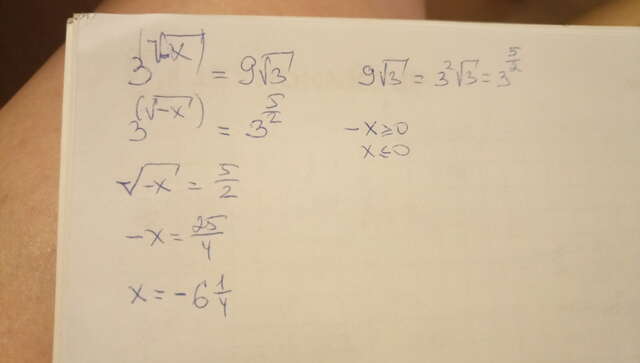 3^(√-x) = 9√3
9√3 = 3²√3 = 3^(5/2)
3^(√-x) = 3^(5/2)
-x ≥ 0
x ≤ 0
√-x = 5/2
-x = 25/4
x = -6 1/4